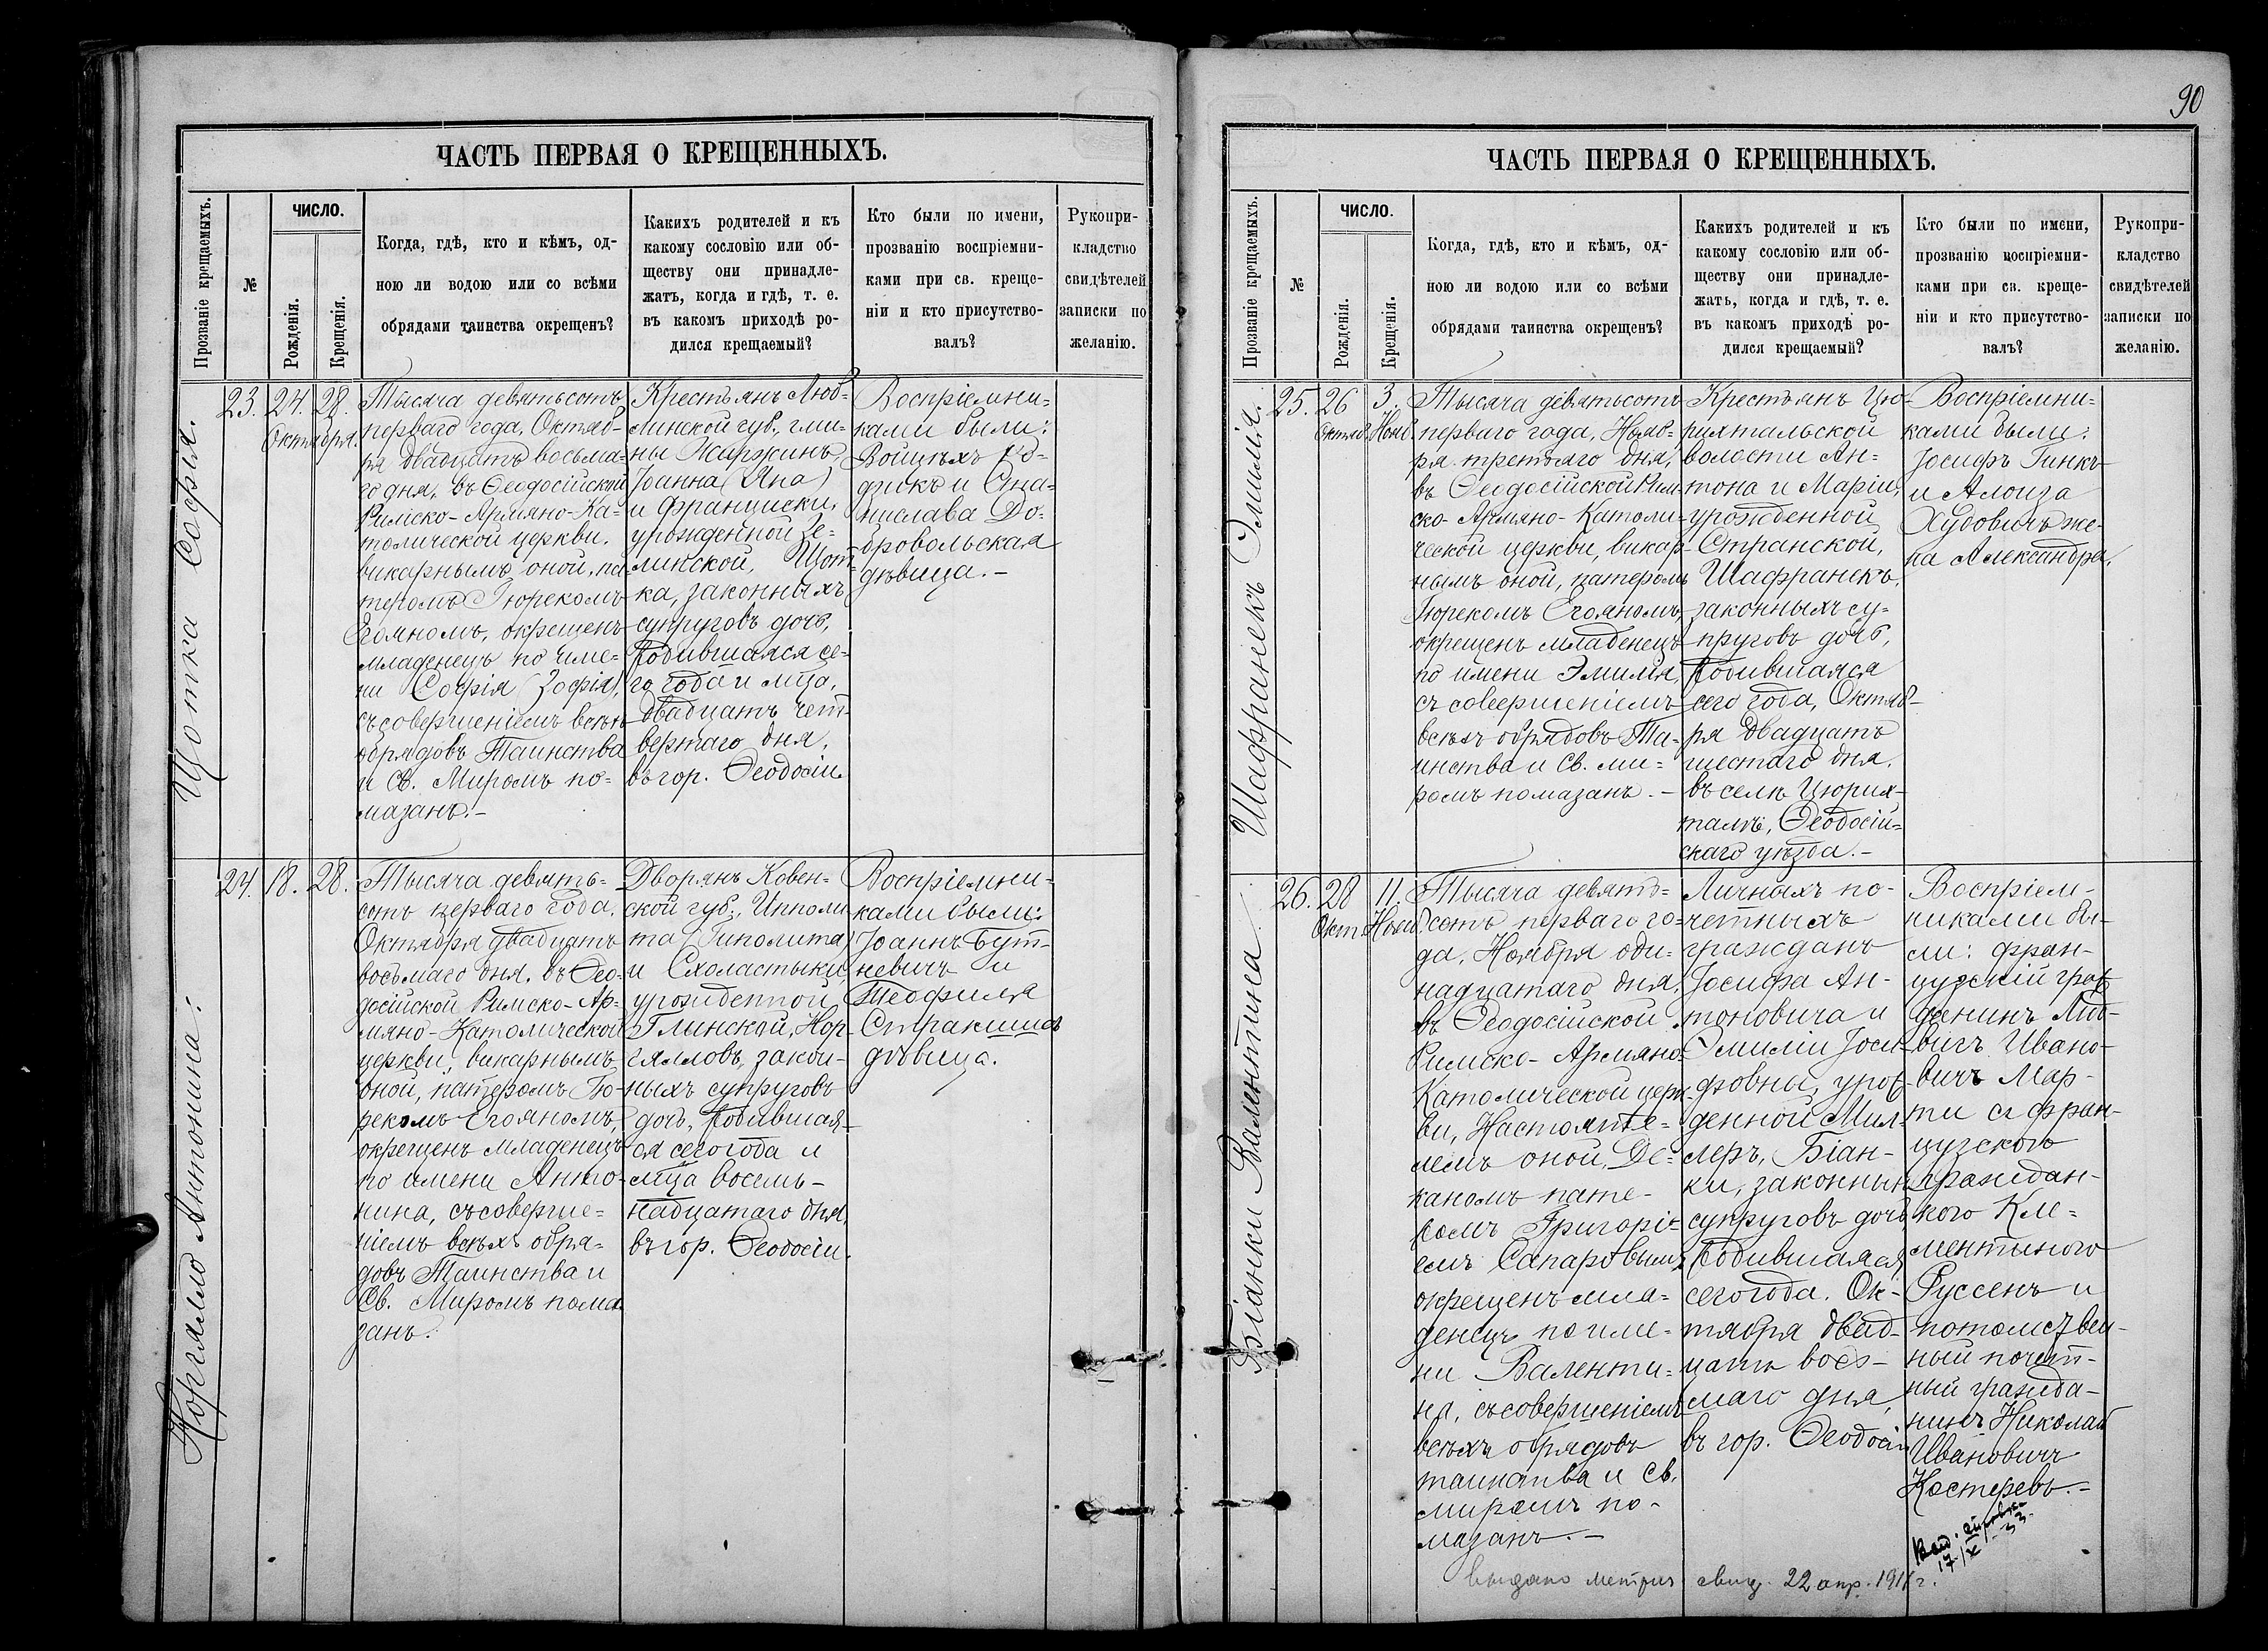 90
ЧАСТЬ ПЕРВАЯ О КРЕЩЕННЫХЪ.
Прозваніе крещаемыхъ.
№
ЧИСЛО.
Рожденія.
Крещенія.
Когда, гдѣ, кто и кѣмъ, од-
ною ли водою или со всѣми
обрядами таинства окрещенъ?
Какихъ родителей и къ
какому сословію или об-
ществу они принадле-
жатъ, когда и гдѣ, т. е.
въ какомъ приходѣ ро-
дился крещаемый?
Кто были по имени,
прозванію воспріемни-
ками при св. креще-
ніи и кто присутство-
валъ?
Рукопри-
кладство
свидѣтелей
записки по
желанію.
Щотка Софія.
23.
24.
28.
Октября.
Тысяча девятьсотъ
перваго года, Октяб-
ря двадцать восьма-
го дня, въ Ѳеодосійской
Римско-Армяно-Ка-
толической церкви.
викарнымъ оной, па-
теромъ Гюрекомъ
Егояномъ, окрещенъ
младенецъ по име-
ни Софія (Зофія),
съ совершеніемъ всѣхъ
обрядовъ Таинства
и Св. Миромъ по-
мазанъ.-
Крестьянъ Люб-
линской губ., гми-
ны Жаржинъ,
Іоанна (Яна)
и Франциски,
урожденной Зе-
линской, Щот-
ка, законныхъ
супруговъ дочь,
родившаяся се-
го года и мца,
двадцать чет-
вертаго дня,
въ гор. Ѳеодосіи.
Воспріемни-
ками были:
Войцѣхъ
и Ста-
нислава До-
бровольская
дѣвица.-
Норгялло Антонина.
24.
18.
28.
Тысяча девять-
сотъ перваго года.
Октября двадцать
восьмаго дня. въ Ѳео-
досійской Римско-Ар-
мяно-Католической
церкви, викарнымъ
оной, патеромъ Гю-
рекомъ Егояномъ,
окрещенъ младенецъ
по имени Анто-
нина, съ соверше-
ніемъ всѣхъ обря-
довъ Таинства и
Св. Миромъ пома
занъ.
Дворянъ Ковен-
ской губ., Ипполи
та (Гиполита)
и Схоластыки,
урожденной
Глинской, Нор-
гялловъ, закон-
ныхъ супруговъ
дочь, родившая-
ся сего года и
мца восемь-
надцатаго дня,
въ гор. Ѳеодосіи.
Воспріемни-
ками были:
Іоаннъ Бут-
невичъ и
Теофиля
дѣвица.
ЧАСТЬ ПЕРВАЯ О КРЕЩЕННЫХЪ.
Прозваніе крещаемыхъ.
№
ЧИСЛО.
Рожденія.
Крещенія.
Когда, гдѣ, кто и кѣмъ, од-
ною ли водою или со всѣми
обрядами таинства окрещенъ?
Какихъ родителей и къ
какому сословію или об-
ществу они принадле-
жатъ, когда и гдѣ, т. е.
въ какомъ приходѣ ро-
дился крещаемый?
Кто были по имени,
прозванію воспріемни-
ками при св. креще-
ніи и кто присутство-
валъ?
Рукопри-
кладство
свидѣтелей
записки по
желанію.
Шафранекъ Эмилія.
25.
26
Октяб.
3.
Нояб.
Тысяча девятьсотъ
перваго года, Нояб-
ря третьяго дня,
въ Ѳеодосійской Рим-
ско-Армяно-Католи-
ческой церкви, викар-
нымъ оной, патеромъ
Гюрекомъ Егояномъ,
окрещенъ младенецъ
по имени Эмилія,
съ совершеніемъ
всѣхъ обрядовъ Та-
инства и Св. ми-
ромъ помазанъ.-
Крестьянъ Цю-
рихтальской
волости Ан-
тона и Маріи,
урожденной
Странской,
Шафранекъ,
законныхъ су-
пруговъ дочь,
родившаяся
сего года, Октяб-
ря двадцать
шестаго дня,
въ селѣ Цюрих-
талѣ, Ѳеодосій-
скаго уѣзда.-
Воспріемни-
ками были:
Іосифъ Гинкъ
и Алоиза
Худовичъ же-
на Александра.
Біанки Валентина
26.
28
Окт.
11.
Нояб.
Тысяча девять-
сотъ перваго го-
да, Ноября оди-
надцатаго дня,
въ Ѳеодосійской
Римско-Армяно-
Католической церк-
ви, Настояте-
лемъ оной, Де-
каномъ пате-
ромъ Григорі-
емъ Сапаровымъ
окрещенъ мла-
денецъ по име-
ни Валенти-
на, съ совершеніемъ
всѣхъ обрядовъ
таинства и св.
миромъ по-
мазанъ.-
Личныхъ по-
четныхъ
гражданъ
Іосифа Ан-
тоновича и
Эмиліи Іоси-
фовны, урож-
денной Мил-
леръ, Біан-
ки, законныхъ
супруговъ дочь
родившаяся
сего года. Ок-
тября двад-
цать вось-
маго дня,
въ гор. Ѳеодосіи
Воспріем-
никами бы-
ли: фран-
цузскій граж
данинъ Люд-
вигъ Ивано-
вичъ Мар-
ти съ фран-
цузскою
граждан-
кою Кле-
ментиною
Руссенъ и
потомствен-
ный почет-
ный гражда-
нинъ Николай
Ивановичъ
Костеревъ.-
17/X 33.
выдано метрич свид. 22 апр. 1911 г.